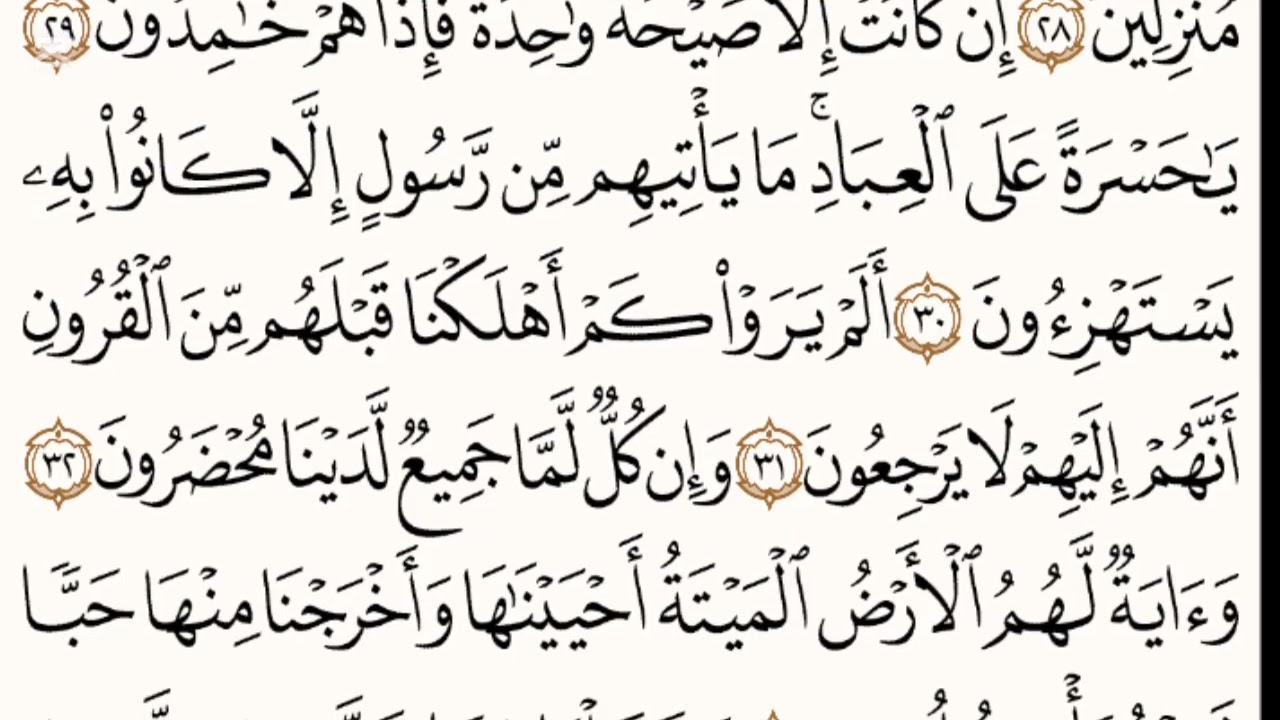 مُنزِلِينَ ٢٨ إِن كَانَتْ إِلَّا صَيْحَةً وَٰحِدَةً فَإِذَا هُمْ خَـٰمِدُونَ ٢٩
يَـٰحَسْرَةً عَلَى ٱلْعِبَادِ ۚ مَا يَأْتِيهِم مِّن رَّسُولٍ إِلَّا كَانُوا۟ بِهِۦ
يَسْتَهْزِءُونَ ٣٠ أَلَمْ يَرَوْا۟ كَمْ أَهْلَكْنَا قَبْلَهُم مِّنَ ٱلْقُرُونِ
أَنَّهُمْ إِلَيْهِمْ لَا يَرْجِعُونَ ٣١ وَإِن كُلٌّ لَّمَّا جَمِيعٌ لَّدَيْنَا مُحْضَرُونَ ٣٢
وَءَايَةٌ لَّهُمُ ٱلْأَرْضُ ٱلْمَيْتَةُ أَحْيَيْنَـٰهَا وَأَخْرَجْنَا مِنْهَا حَبًّا